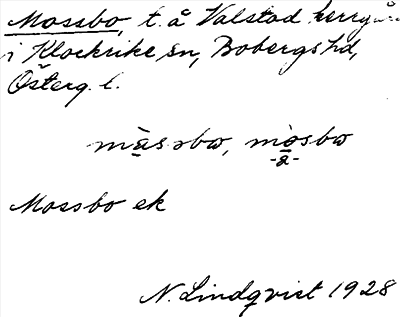 Mossbo, t. å Valstad herrgård
i Klockrike sn, Bobergs hd,
Österg. l.
måssbω, mosbω
-å-
Mossbo ek
N. Lindqvist 1928